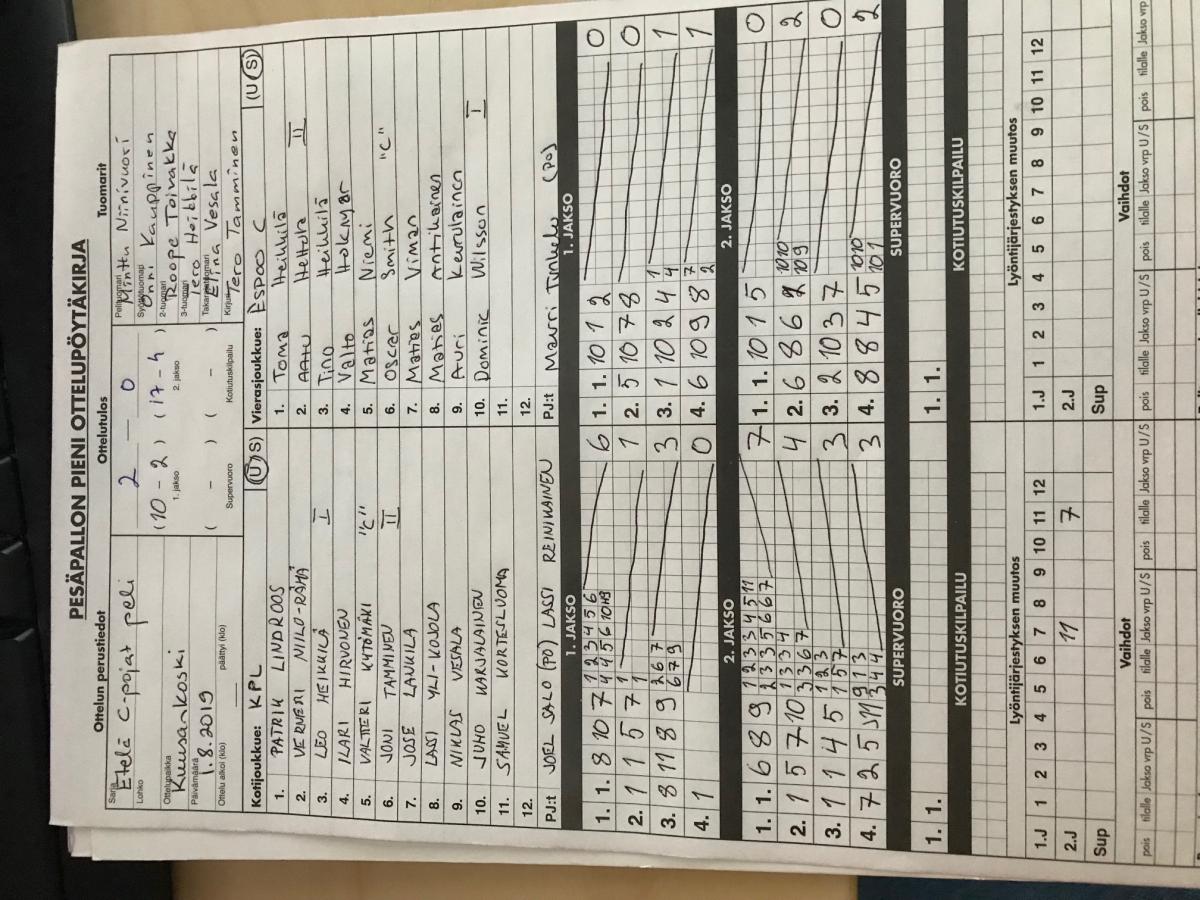 PESÄPALLON PIENI OTTELUPÖYTÄKIRJA
Ottelun perustiedot
Sarja Etelä C-pojat peli
Lohko
Ottelupaikka Kuusankoski
Päivämäärä 1.8.2019
Ottelu alkoi (klo) päättyi (klo)
Ottelutulos
2 — 0
(10 - 2) (17 - 4)
1. jakso 2. jakso
( - ) ( - )
Supervuoro Kotiutuskilpailu
Tuomarit
Pelituomari Minttu Niinivuori
Syöttötuomari Onni Kauppinen
2-tuomari Roope Toivakka
3-tuomari Iero Heikkilä
Takarajatuomari Elina Vesala
Kirjuri Tero Tamminen
Kotijoukkue: KPL (U/S)
1. PATRIK LINDROOS
2. VERNERI NIILO-RÄMÄ
3. LEO HEIKKILÄ I
4. ILARI HIRVONEN
5. VALTTERI KYTÖMÄKI "C"
6. JONI TAMMINEN II
7. JOSE LAUKILA
8. LASSI YLI-KOJOLA
9. NIKLAS VESALA
10. JUHO KARJALAINEN
11. SAMUEL KORTESLUOMA
12.
PJ:t JOEL SALO (PO) LASSI REINIKAINEN
Vierasjoukkue: ESPOO C (U/S)
1. Toma Heikkilä
2. AATU Hettula II
3. Tino Heikkilä
4. Valto Hoknyar
5. Matias Niemi
6. Oscar Smith "C"
7. Matias Viman
8. Matias Antikainen
9. Auri Keurulainen
10. Dominic Wilsson I
11.
12.
PJ:t Mauri Tynkelo (PO)
1. JAKSO
1. 1. 8 10 7 1 2 3 4 5 6 6
4 4 5 6 10 H9
2. 1 1 5 7 1 1
1
3. 8 11 8 9 2 6 7 3
6 7 9
4. 1 0
1. JAKSO
1. 1. 10 1 2 0
2. 5 10 7 8 0
3. 1 10 2 4 1 1
4
4. 6 10 9 8 7 1
2
2. JAKSO
1. 1. 6 8 9 1 2 3 3 4 5 11 7
2 3 3 5 6 6 7
2. 1 5 7 10 1 3 3 4 4
3 3 6 7
3. 1 1 4 5 1 2 3 3
1 5 7
4. 7 2 5 9 1 3 3
3 4 4
2. JAKSO
1. 1. 10 1 5 0
2. 6 8 6 2 10 10 2
10 9
3. 2 10 3 7 0
4. 8 8 4 5 10 10 2
10 1
SUPERVUORO
1. 1.
SUPERVUORO
1. 1.
KOTIUTUSKILPAILU
KOTIUTUSKILPAILU
Lyöntijärjestyksen muutos
1.J 1 2 3 4 5 6 7 8 9 10 11 12
2.J 11 7
Sup
Lyöntijärjestyksen muutos
1.J 1 2 3 4 5 6 7 8 9 10 11 12
2.J
Sup
Vaihdot
pois tilalle Jakso vrp U/S pois tilalle Jakso vrp U/S pois tilalle Jakso vrp U/S
Vaihdot
pois tilalle Jakso vrp U/S pois tilalle Jakso vrp U/S pois tilalle Jakso vrp